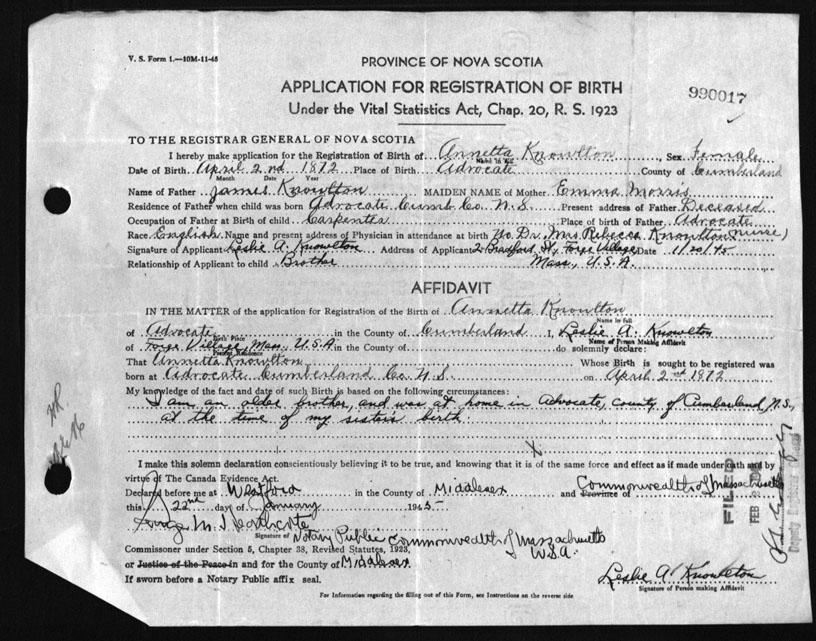 V. S. Form 1.—10M-11-45
PROVINCE OF NOVA SCOTIA
APPLICATION FOR REGISTRATION OF BIRTH
990017
Under the Vital Statistics Act, Chap. 20, R. S. 1923
TO THE REGISTRAR GENERAL OF NOVA SCOTIA
I hereby make application for the Registration of Birth of Annetta Knowlton, Sex Female
Name in full
Date of Birth April 2nd 1872 Place of Birth Advocate County of Cumberland
Month Date Year
Name of Father James Knowlton MAIDEN NAME of Mother Emma Morris
Residence of Father when child was born Advocate Cumb. Co. N.S. Present address of Father Deceased
Occupation of Father at Birth of child Carpenter Place of birth of Father Advocate
Race English Name and present address of Physician in attendance at birth No Dr. Mrs Rebecca Knowlton (nurse)
Signature of Applicant Leslie A. Knowlton Address of Applicant 2 Bradford St, Forge Village, Date 1/20/45
Relationship of Applicant to child Brother Mass, U.S.A.
AFFIDAVIT
IN THE MATTER of the application for Registration of the Birth of Annetta Knowlton
Name in full
of Advocate in the County of Cumberland I, Leslie A. Knowlton
Birth Place Name of Person Making Affidavit
of Forge Village, Mass, U.S.A in the County of do solemnly declare:
Present Residence
That Annetta Knowlton Whose Birth is sought to be registered was
born at Advocate Cumberland Co N.S. on April 2nd 1872
My knowledge of the fact and date of such Birth is based on the following circumstances:
I am an older brother, and was at home in Advocate, County of Cumberland, N.S.,
at the time of my sisters birth.
X
I make this solemn declaration conscientiously believing it to be true, and knowing that it is of the same force and effect as if made under oath and by
virtue of The Canada Evidence Act.
Declared before me at Westford in the County of Middlesex and Province of Commonwealth of Massachusetts
this 22nd day of January 1945
Signature of Notary Public Commonwealth of Massachusetts
U.S.A.
Commissioner under Section 5, Chapter 38, Revised Statutes, 1923,
or Justice of the Peace in and for the County of Middlesex
If sworn before a Notary Public affix seal.
Leslie A. Knowlton
Signature of Person making Affidavit
For Information regarding the filling out of this Form, see Instructions on the reverse side
FILED
FEB
Deputy Registrar General